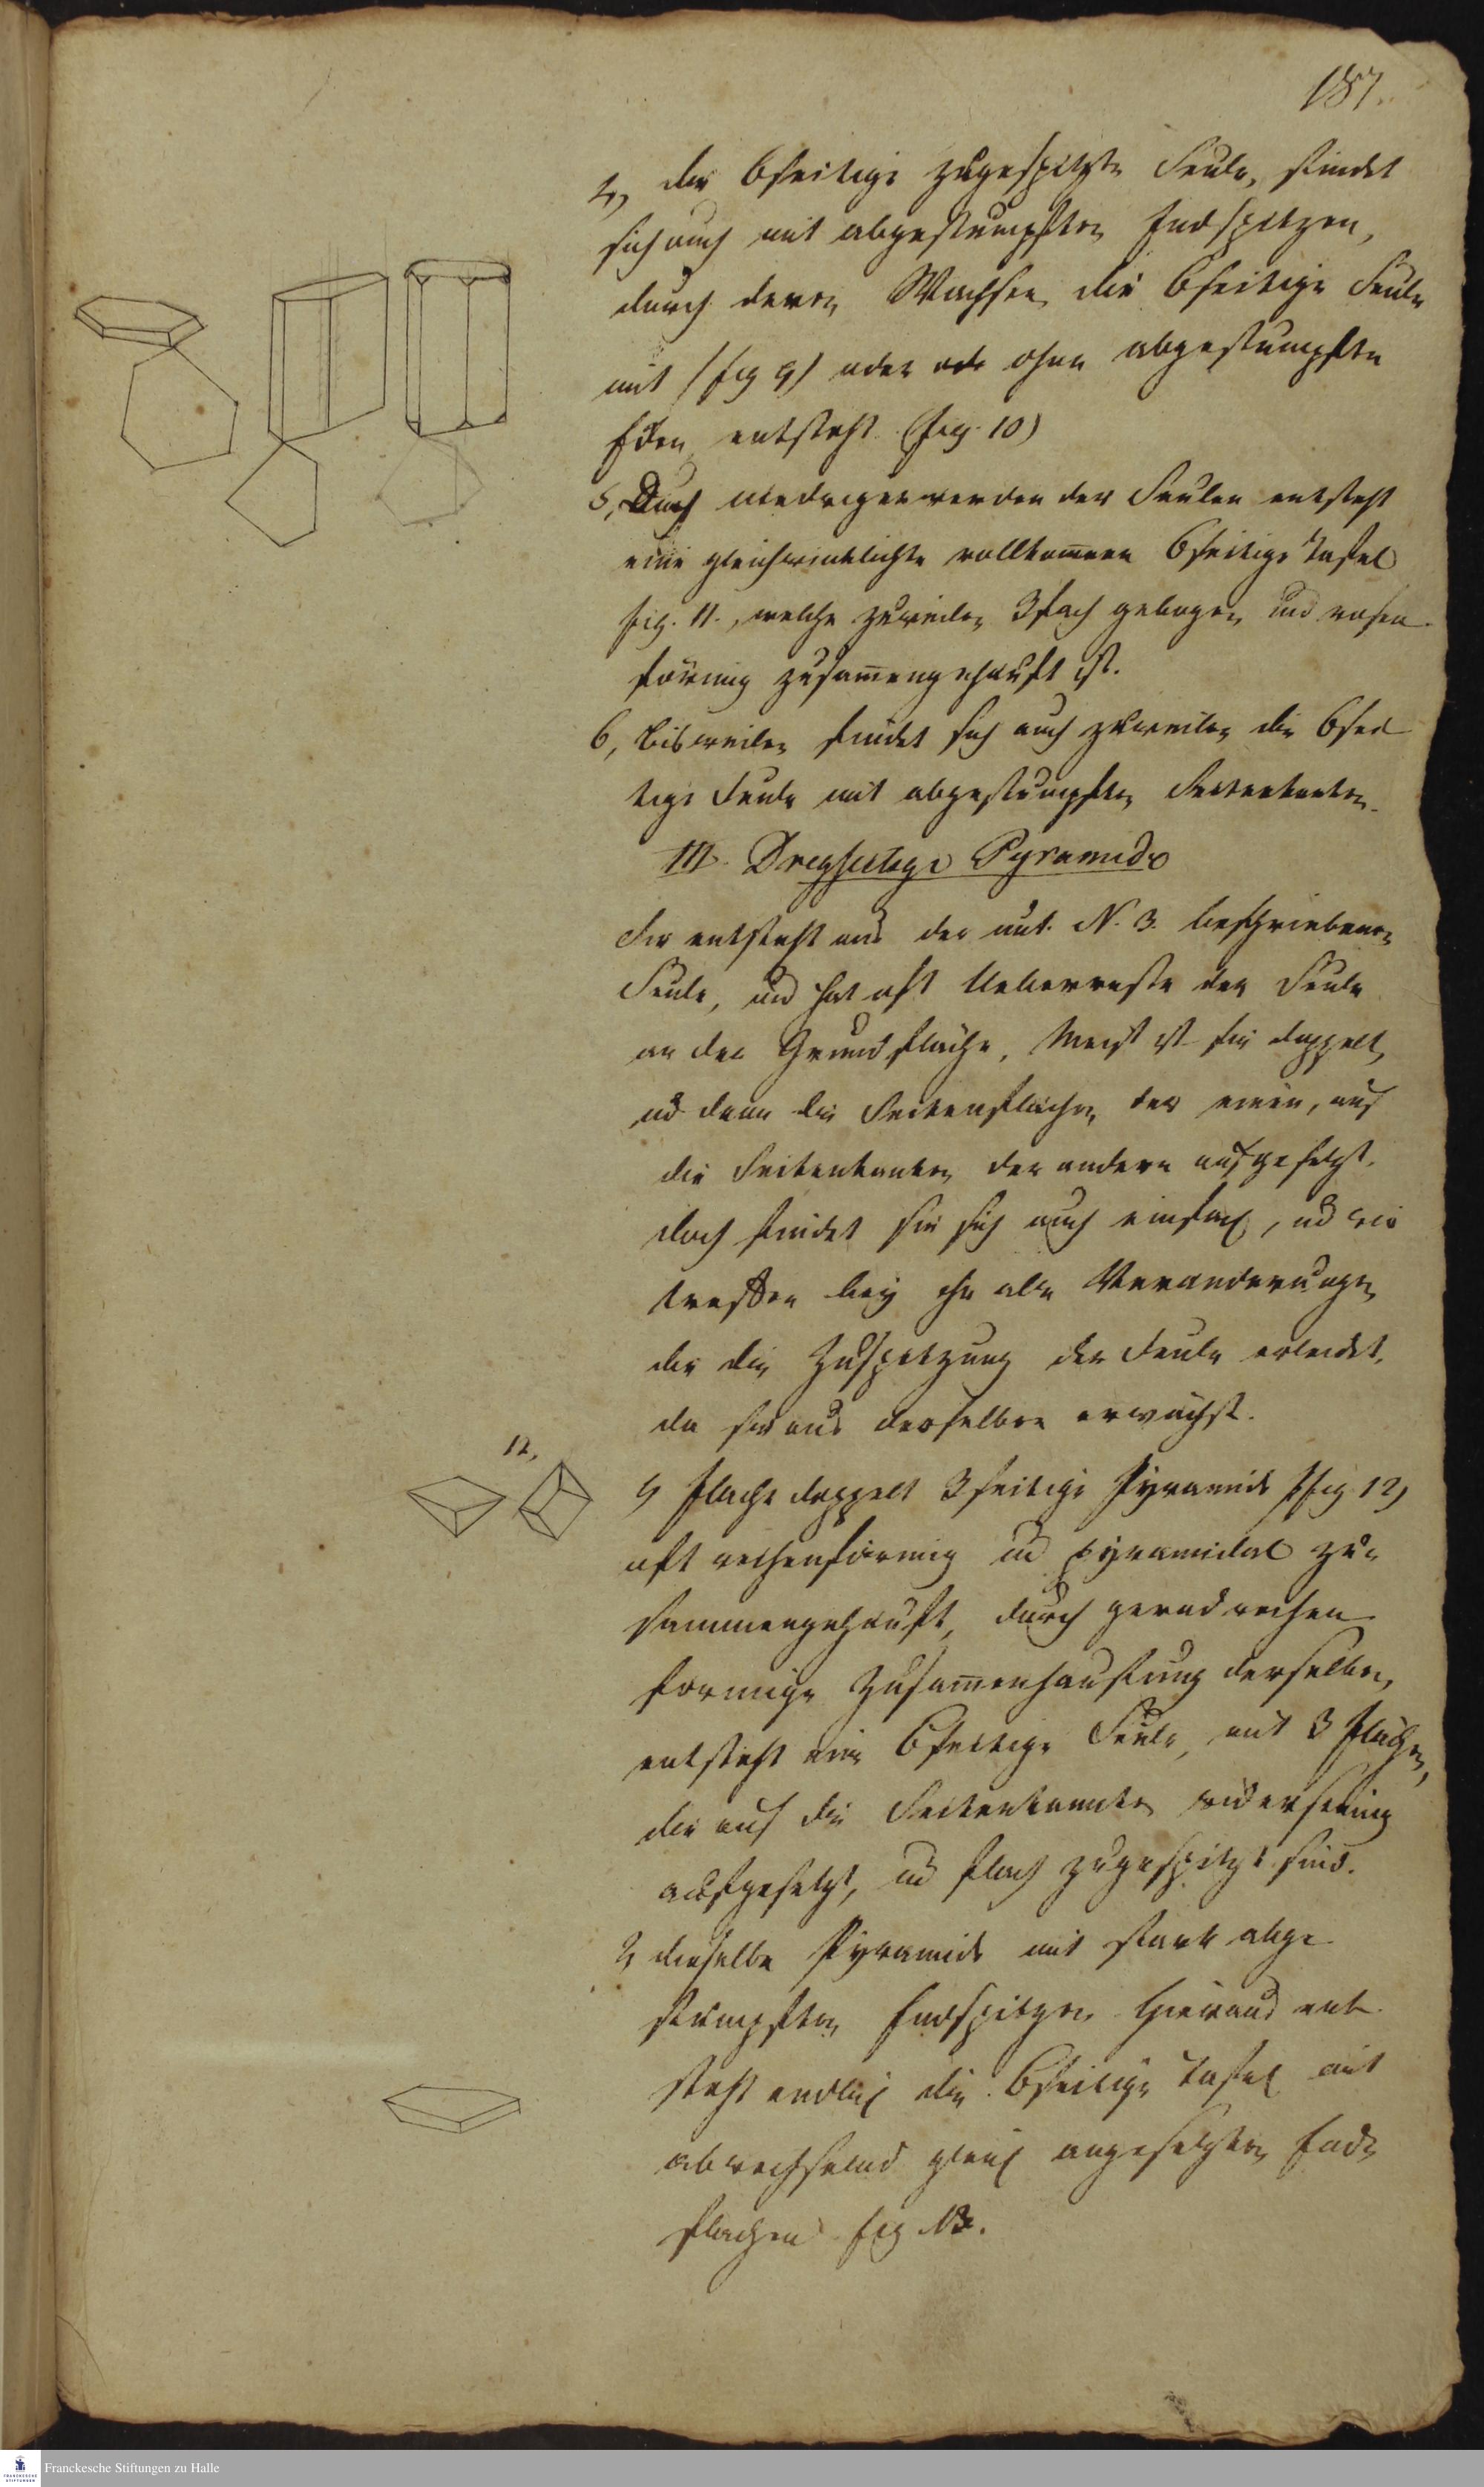 187.
4, die 6seitige zugespitzte Seule, findet
sich auch mit abgestumpften Endspitzen,
durch deren Wachsen die 6seitige Seule
mit /fig 9/ oder ohne abgestumpften
Ecken entsteht (fig. 10)
5, Durch niedrigerwerden der Seulen entsteht
eine gleichwinklichte vollkom̄ene 6seitige Tafel
fig. 11., welche zuweilen 3fach gebogen und rosen-
förmig zusam̄engehäuft ist.
6, bisweilen findet sich auch zuweilen die 6sei
tige Seule mit abgestumpften Seitenkanten.
III. Dreyseitige Pyramide
Sie entsteht aus der unt. N. 3. beschriebenen
Seule, und hat oft Ueberreste der Seule
an der Grundfläche. Meist ist sie doppelt,
und dann die Seitenflächen der einen, auf
die Seitenkanten der andern aufgesetzt.
doch findet sie sich auch einfach, und wir
treffen bey ihr alle Veränderungen
die die Zuspitzung der Seule erleidet,
da sie aus derselben erwächst.
12,
1, flache doppelt 3seitige Pyramide /fig 12)
oft reihenförmig und pyramidal zu-
sammengehäuft, durch gerad reihen
formige Zusam̄enhäufung derselben,
entsteht eine 6seitige Seule, mit 3 Flächen,
die auf die Seitenkannten widersinnig
aufgesetzt, und flach zugespitzt sind.
2, dieselbe Pyramide mit stark abge
stumpften Endspitzen hieraus ent-
steht endlich die 6seitige Tafel mit
abwechselnd gleich angesetzten End
flächen fig 13.
Franckesche Stiftungen zu Halle